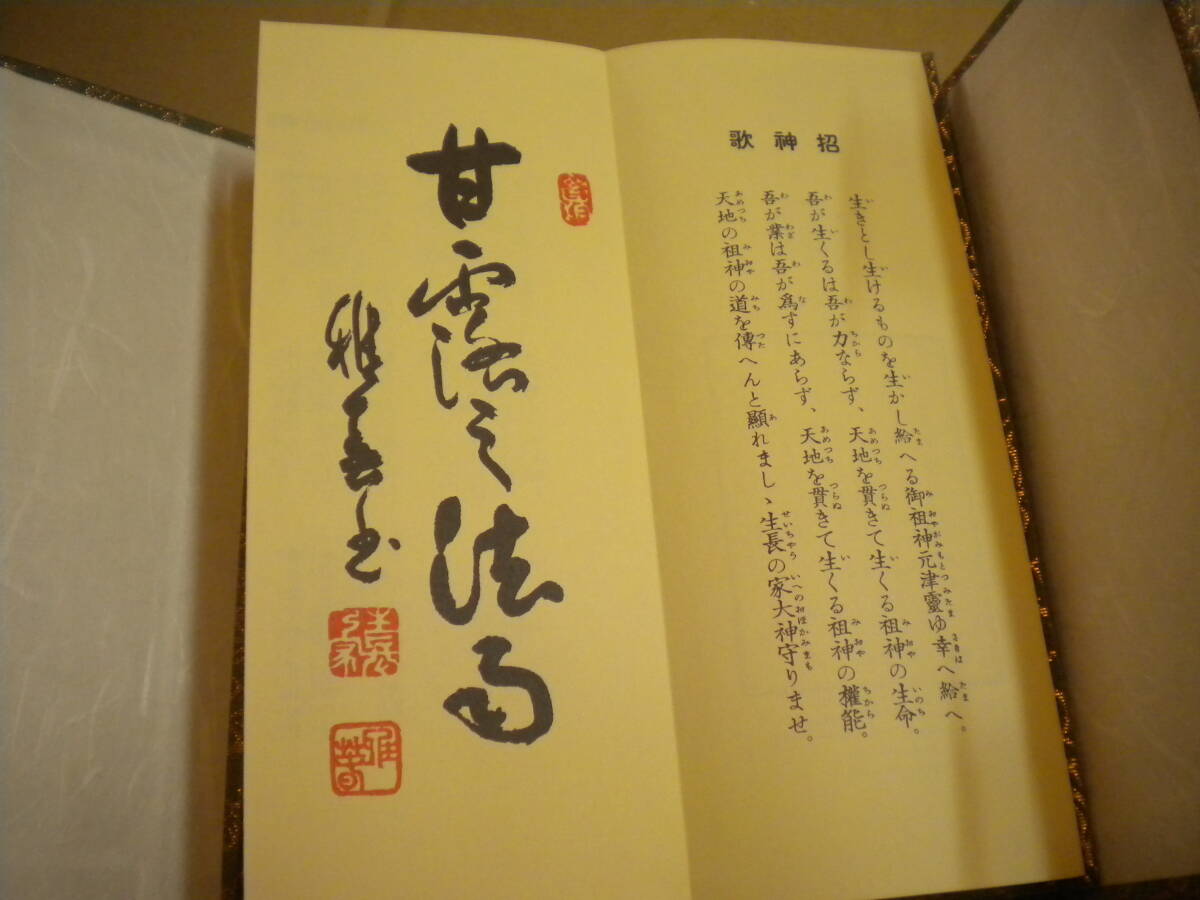 招神歌
生きとし生けるものを生かし給へる御祖神元津靈ゆ幸へ給へ。
吾が生くるは吾が力ならず、天地を貫きて生くる祖神の生命。
吾が業は吾が爲すにあらず、天地を貫きて生くる祖神の權能。
天地の祖神の道を傳へんと顯れましゝ生長の家大神守りませ。
甘露之法雨
雅春書
生長之家
雅春